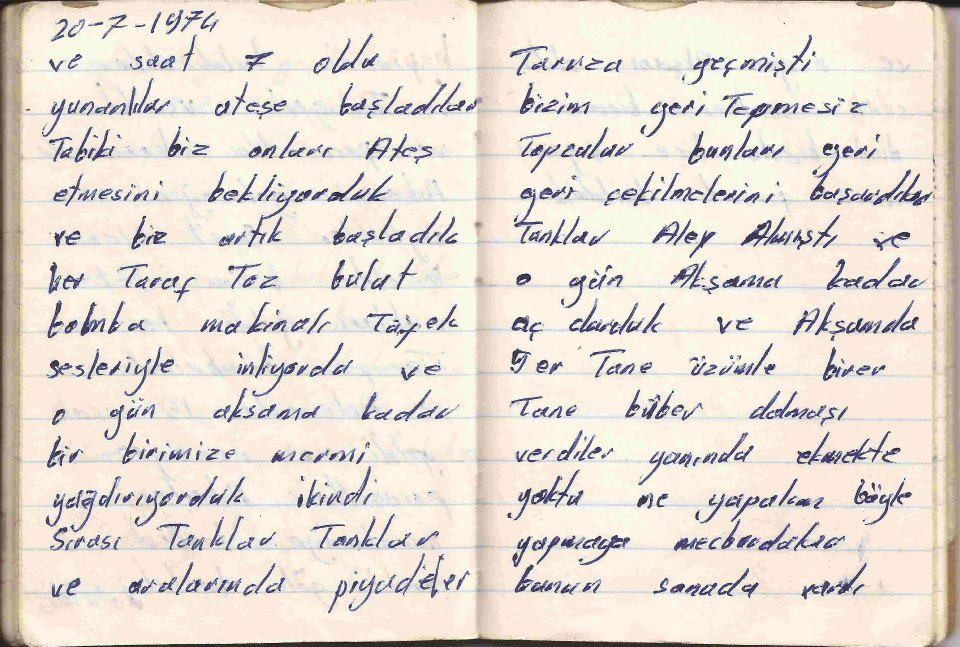 20-7-1974
ve saat 7 oldu
yunanlılar ateşe başladılar
Tabiki biz onları Ateş
etmesini bekliyorduk
ve biz artık başladık
her Taraf Toz bulut
bomba makinalı Tüfek
sesleriyle inliyordu ve
o gün aksama kadar
bir birimize mermi
yağdırıyorduk ikindi
Sırası Tanklar Tanklar
ve aralarında piyadeler
Taruza geçmişti
bizim geri Tepmesiz
Topcular bunları geri
geri çekilmelerini başardılar
Tanklar Alev Almıştı ve
o gün Akşama kadar
aç durduk ve Akşamda
5er Tane üzümle birer
Tane büber dolması
verdiler yanında ekmekte
yoktu ne yapalım böyle
yapmaya mecburdular
bunun sonada vardı